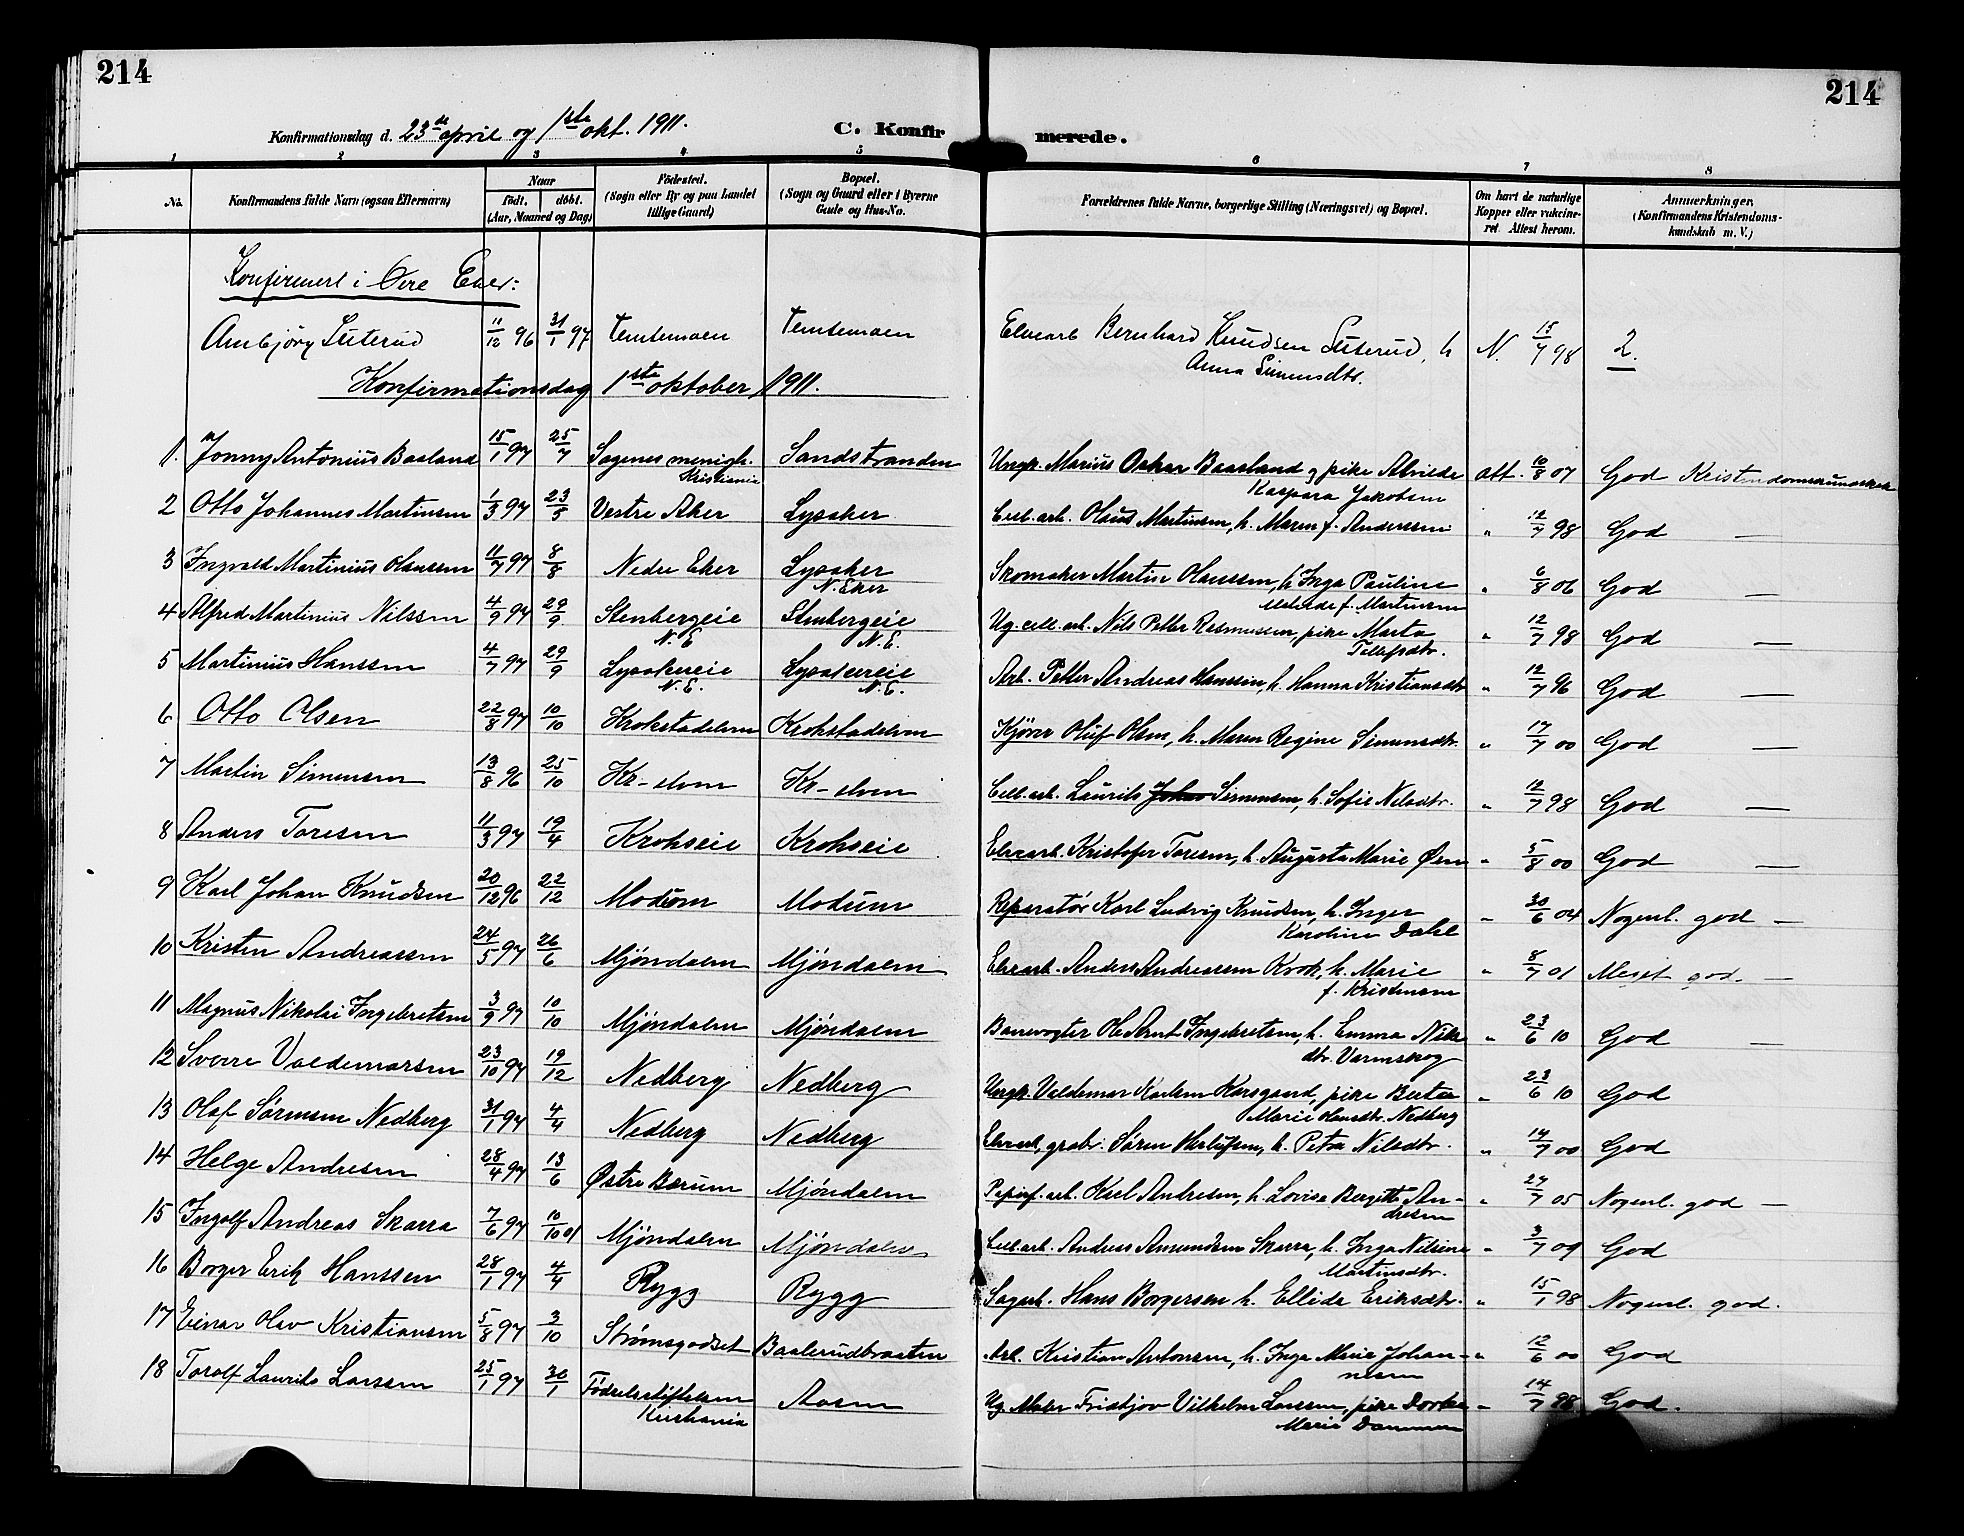 214
214
Konfirmationsdag d. 23de april og 1ste okt. 1911.
C. Konfirmerede.
1 2 3 4 5 6 7 8
No.
Konfirmandens fulde Navn (ogsaa Efternavn)
Naar
født. døbt.
(Aar, Maaned og Dag)
Fødested.
(Sogn eller By og paa Landet tillige Gaard)
Bopæl.
(Sogn og Gaard eller i Byerne Gade og Hus-No.
Forældrenes fulde Navne, borgerlige Stilling (Næringsvei) og Bopæl.
Om havt de naturlige Kopper eller vakcineret. Attest herom.
Anmærkninger.
(Konfirmandens Kristendomskundskab m. V.)
Konfirmert i Øvre Eker:
Ambjørg Suterud 11/12 96 31/1 97 Temtemoen Temtemoen Elvearb Bernhard Knudsen Suterud, h N. 15/7 98 2.
Anna Simensdtr.
Konfirmationsdag 1ste oktober 1911.
1. Jonny Antonius Baaland 15/1 97 25/7 Sagenes menigh. Sandstranden Ungk. Marius Oskar Baasland og pike Alvilde att. 10/8 07 God Kristendomskundskab
Kristiania Kaspara Jakobsen
2 Otto Johannes Martinsen 1/3 97 23/5 Vestre Aker Lysaker Cell.arb. Olaus Martinsen, h. Maren f. Anderssen " 12/7 98 God —
3 Ingvald Martinius Olaussen 11/7 97 8/8 Nedre Eker Lysaker Skomaker Martin Olaussen, h Inga Pauline " 6/8 06 God —
N. Eker Mathilde f. Martinsen
4 Alfred Martinius Nilssen 4/9 97 29/9 Stenbergeie Stenbergeie Ug. cell. arb. Nils Petter Rasmussen, pike Marta " 12/7 98 God —
N.E. N.E. Tellefsdtr.
5 Martinius Hanssen 4/7 97 29/9 Lysakereie Lysakereie Arb. Petter Andreas Hanssen, h. Hanna Kristiansdtr " 12/7 96 God —
N.E. N.E.
6 Otto Olsen 22/8 97 10/10 Krokstadelven Krokstadelven Kjører Oluf Olsen, h. Maren Regine Simensdtr. " 17/7 00 God —
7 Martin Simensen 13/8 96 25/10 Kr-elven Kr-elven Cell.arb. Laurits Johan Simensen, h. Sofie Nilsdtr. " 12/7 98 God —
8 Anders Toresen 11/3 97 19/4 Krokseie Krokseie Elvearb. Kristofer Toresen, h. Augusta Marie Øen " 5/8 00 God —
9 Karl Johan Knudsen 20/12 96 22/12 Modum Modum Reparatør Karl Ludvig Knudsen, h. Inger " 30/6 04 Nogenl. god —
Karoline Dahl
10 Kristen Andreassen 24/5 97 26/6 Mjøndalen Mjøndalen Elvearb. Anders Andreassen Krok, h. Marie " 8/7 01 Meget god. —
f. Kristensen
11 Magnus Nikolai Ingebretsen 3/9 97 10/10 Mjøndalen Mjøndalen Banevogter Ole Arnt Ingebretsen, h. Emma Nils- " 23/6 10 God —
dtr. Varmskog
12 Sverre Valdemarsen 23/10 97 19/12 Nedberg Nedberg Ungk. Valdemar Karlsen Korsgaard, pike Bertea " 23/6 10 God
Marie Hansdtr. Nedberg
13 Olaf Sørensen Nedberg 31/1 97 4/4 Nedberg Nedberg Elvearb, grabr. Søren Herlufsen, h. Petra Nilsdtr. " 14/7 00 God
14 Helge Andresen 28/4 97 13/6 Østre Bærum Mjøndalen Papirf. arb. Karl Andresen, h. Lovisa Bergitte An- " 27/7 05 Nogenl. god —
dresen
15 Ingolf Andreas Skarra 7/6 97 10/10 01 Mjøndalen Mjøndalen Cell.arb. Anders Amundsen Skarra, h. Inga Nilsine " 3/7 09 God
Martinsdtr.
16 Borger Erik Hanssen 28/1 97 4/4 Rygg Rygg Sagarb. Hans Borgersen h. Ellida Eriksdtr. " 15/1 98 Nogenl. god.
17 Einar Olav Kristiansen 5/8 97 3/10 Strømsgodset Baalerudbraaten Arb. Kristian Antonsen, h. Inga Marie Johan- " 12/6 00 God
nesen
18 Toralf Laurits Larssen 25/1 97 30/1 Fødselsstiftelsen Aasen Ug. Maler Fridtjov Vilhelm Larssen, pike Dortea " 14/7 98 God.
Kristiania Marie Dammen